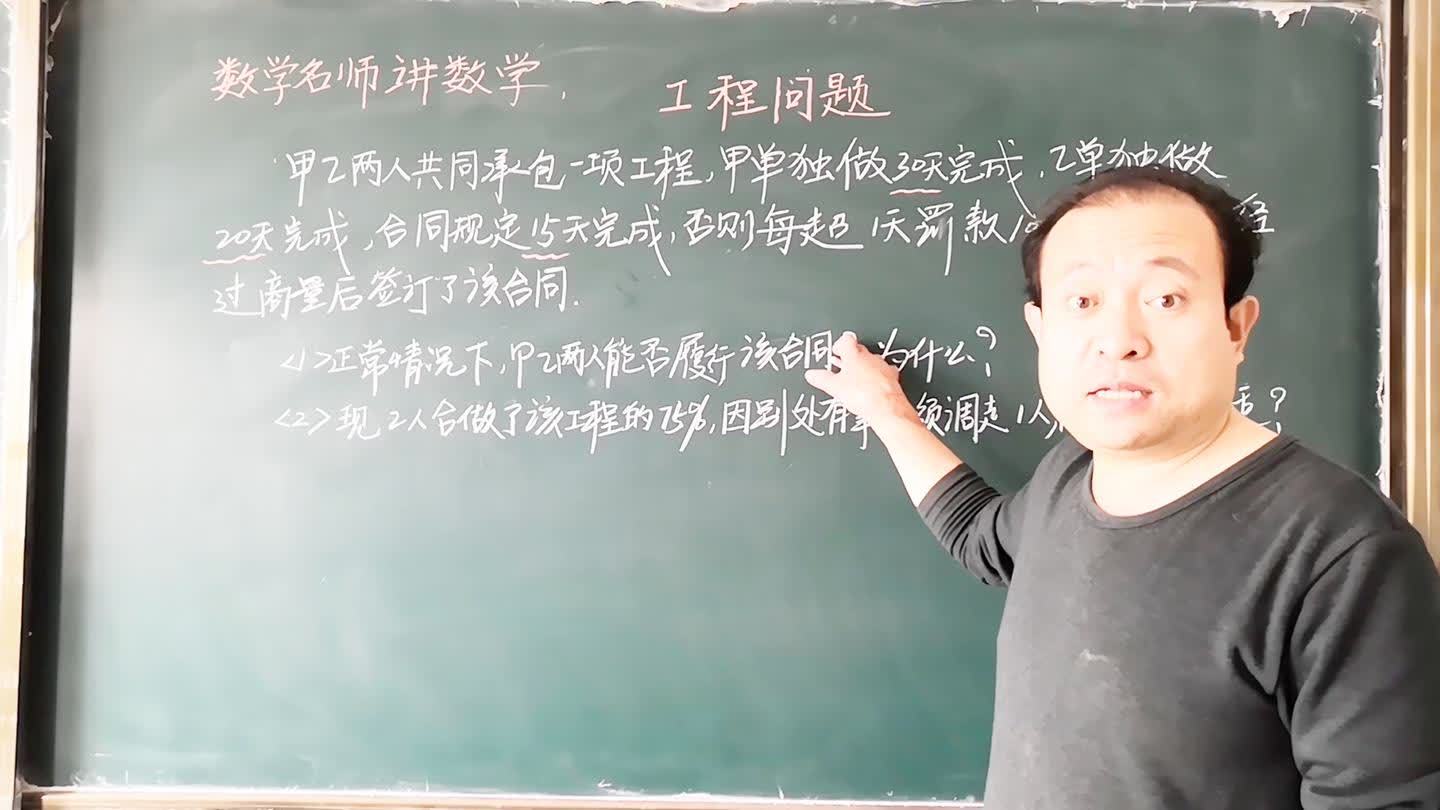 数学名师讲数学. 工程问题
甲乙两人共同承包一项工程,甲单独做30天完成,乙单独做
20天完成,合同规定15天完成,否则每超1天罚款 径
过商量后签订了该合同.
<1>正常情况下,甲乙两人能否履行该合同? 为什么?
<2>现2人合做了该工程的75%,因别处有事 须调走1人, ?